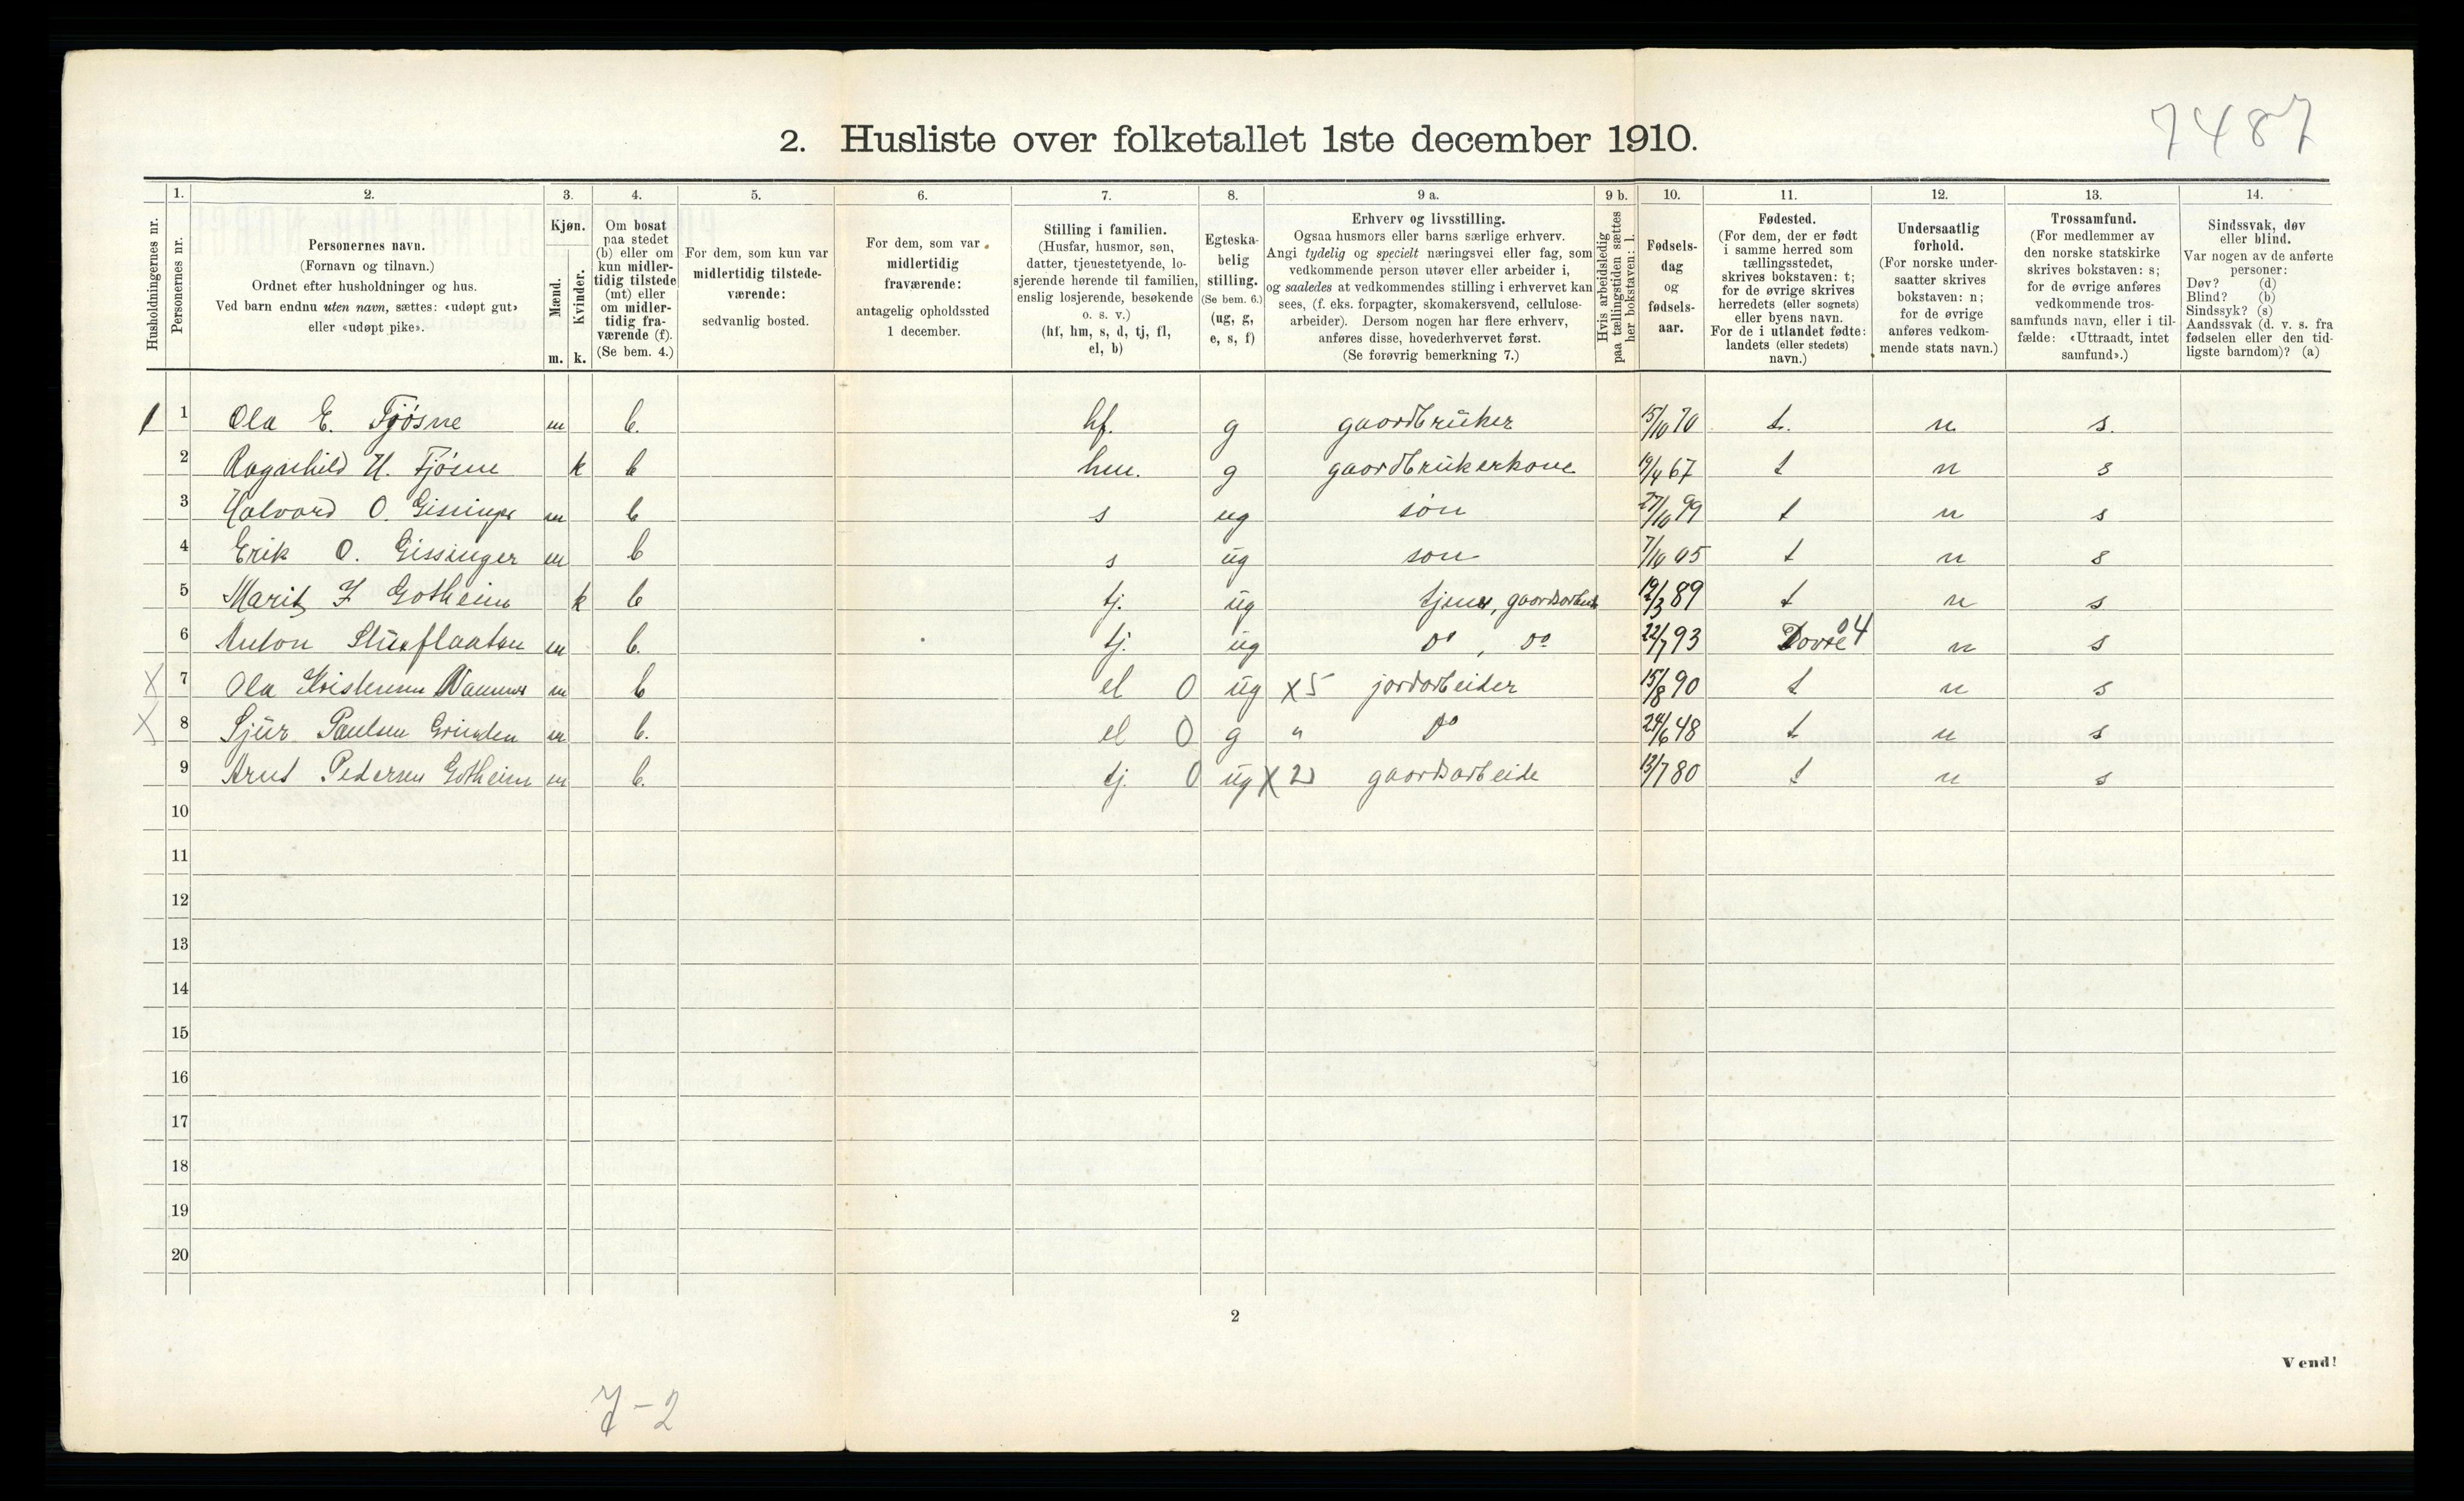 7487
2. Husliste over folketallet 1ste december 1910.
Husholdningernes nr.
1. Personernes nr.
2. Personernes navn. (Fornavn og tilnavn.) Ordnet efter husholdninger og hus. Ved barn endnu uten navn, sættes: «udøpt gut» eller «udøpt pike».
3. Kjøn. Mænd. m. Kvinder. k.
4. Om bosat paa stedet (b) eller om kun midlertidig tilstede (mt) eller om midlertidig fraværende (f). (Se bem. 4.)
5. For dem, som kun var midlertidig tilstedeværende: sedvanlig bosted.
6. For dem, som var midlertidig fraværende: antagelig opholdssted 1 december.
7. Stilling i familien. (Husfar, husmor, søn, datter, tjenestetyende, losjerende hørende til familien, enslig losjerende, besøkende o. s. v.) (hf, hm, s, d, tj, fl, el, b)
8. Egteskabelig stilling. (Se bem. 6.) (ug, g, e, s, f)
9 a. Erhverv og livsstilling. Ogsaa husmors eller barns særlige erhverv. Angi tydelig og specielt næringsvei eller fag, som vedkommende person utøver eller arbeider i, og saaledes at vedkommendes stilling i erhvervet kan sees, (f. eks. forpagter, skomakersvend, cellulosearbeider). Dersom nogen har flere erhverv, anføres disse, hovederhvervet først. (Se forøvrig bemerkning 7.)
9 b. Hvis arbeidsledig paa tællingstiden sættes her bokstaven: l.
10. Fødselsdag og fødselsaar.
11. Fødested. (For dem, der er født i samme herred som tællingsstedet, skrives bokstaven: t; for de øvrige skrives herredets (eller sognets) eller byens navn. For de i utlandet fødte: landets (eller stedets) navn.)
12. Undersaatlig forhold. (For norske undersaatter skrives bokstaven: n; for de øvrige anføres vedkommende stats navn.)
13. Trossamfund. (For medlemmer av den norske statskirke skrives bokstaven: s; for de øvrige anføres vedkommende trossamfunds navn, eller i tilfælde: «Uttraadt, intet samfund».)
14. Sindssvak, døv eller blind. Var nogen av de anførte personer: Døv? (d) Blind? (b) Sindssyk? (s) Aandssvak (d. v. s. fra fødselen eller den tidligste barndom)? (a)
1 1 Ola E. Fjøsne m b. hf. g gaardbruker 15/10 70 t. n s.
2 Ragnhild H. Fjøsne k b hm. g gaardbrukerkone 19/4 67 t n s
3 Halvard O. m b s ug søn 27/10 99 t n s
4 Erik O. Gissinger m b s ug søn 7/10 05 t n s
5 Marit J Gotheim k b tj. ug gaardsarbeid 12/3 89 t n s
6 Anton m b. tj. ug do, do 22/7 93 Dovre 04 n s
X 7 Ola m b el 0 ug x5 jordarbeider 15/8 90 t n s
X 8 Sjur Paulsen Grinden m b. el 0 g " do 24/6 48 t n s
9 Arnt Pedersen Gotheim m b. tj. 0 ug X 2 gaardsarbeide 13/7 80 t n s
10
11
12
13
14
15
16
17
18
19
20
2
Vend!
7-2